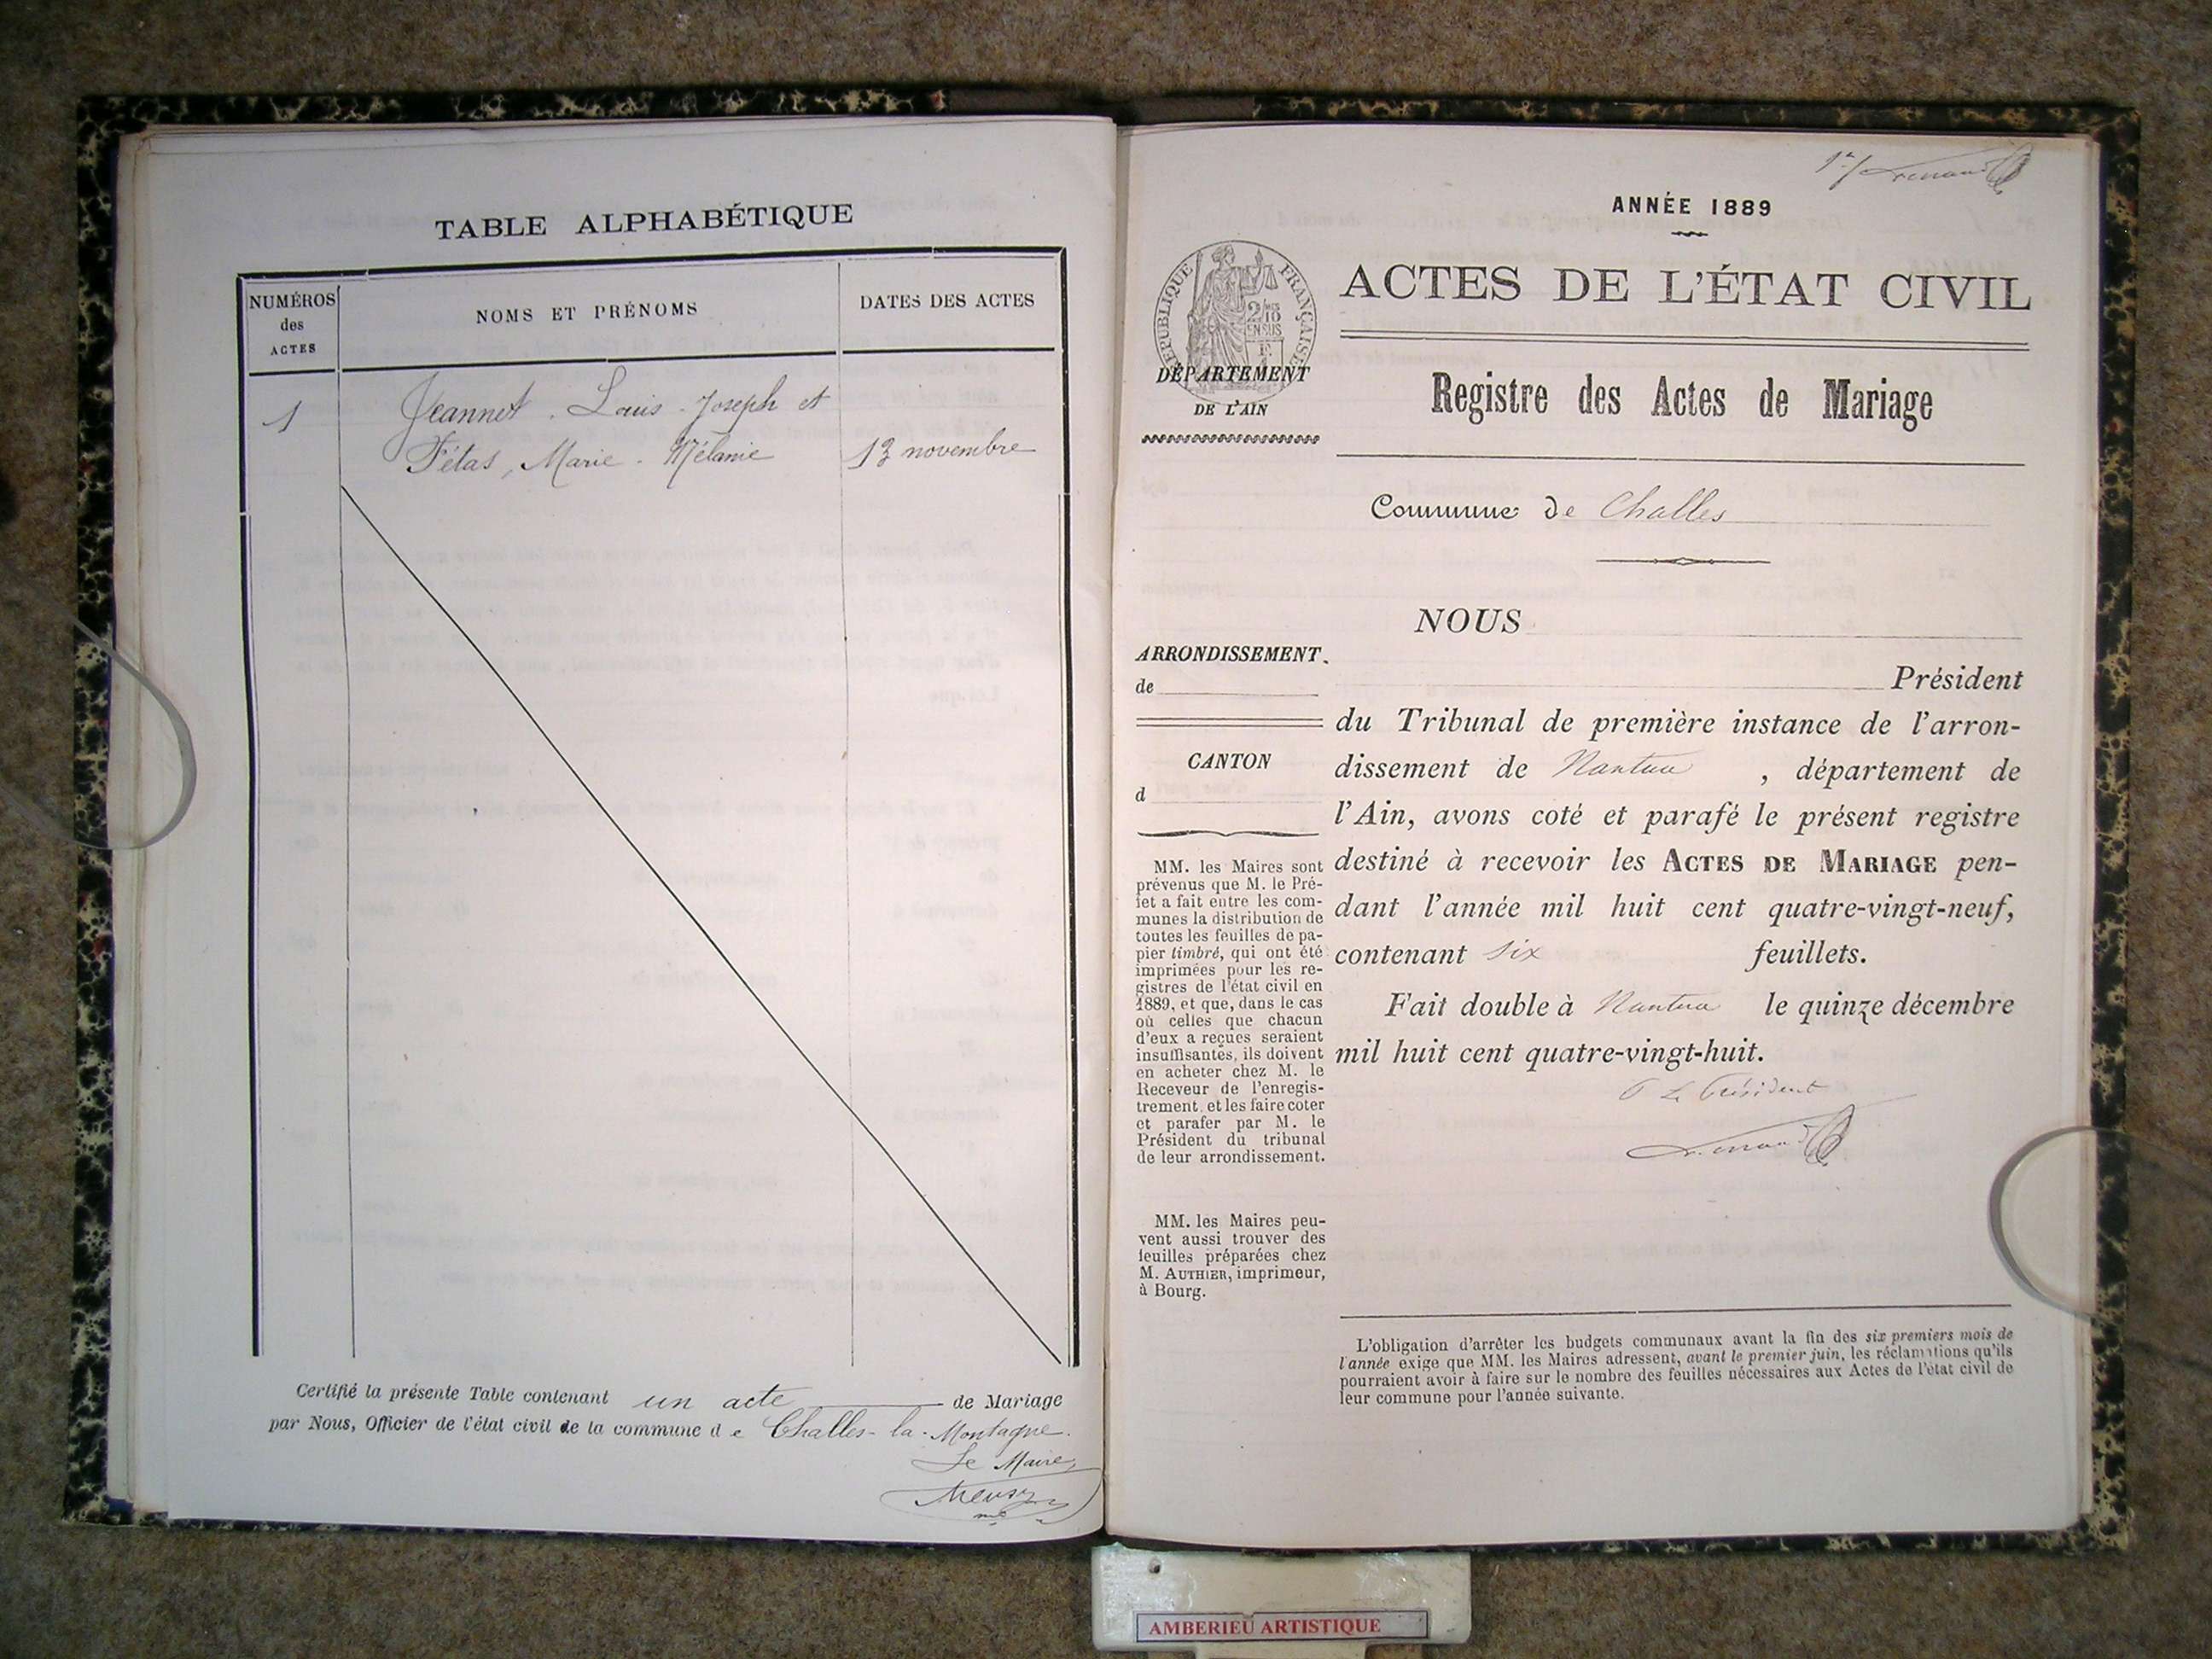 TABLE ALPHABÉTIQUE
NUMÉROS
des
ACTES
NOMS ET PRÉNOMS
DATES DES ACTES
1
Jeannet. Louis-Joseph et
Fétas, Marie-Mélanie
13 novembre
Certifié la présente Table contenant un acte de Mariage
par Nous, Officier de l'état civil de la commune de Challes-la-Montagne.
Le Maire,
ANNÉE 1889
RÉPUBLIQUE FRANÇAISE
2/10
EN SUS
DÉPARTEMENT
DE L'AIN
ACTES DE L'ÉTAT CIVIL
Registre des Actes de Mariage
Commune de Challes
ARRONDISSEMENT
de
CANTON
d
MM. les Maires sont
prévenus que M. le Pré-
fet a fait entre les com-
munes la distribution de
toutes les feuilles de pa-
pier timbré, qui ont été
imprimées pour les re-
gistres de l'état civil en
1889, et que, dans le cas
où celles que chacun
d'eux a reçues seraient
insuffisantes, ils doivent
en acheter chez M. le
Receveur de l'enregis-
trement, et les faire coter
et parafer par M. le
Président du tribunal
de leur arrondissement.
MM. les Maires peu-
vent aussi trouver des
feuilles préparées chez
M. AUTHIER, imprimeur,
à Bourg.
NOUS
Président
du Tribunal de première instance de l'arron-
dissement de Nantua, département de
l'Ain, avons coté et parafé le présent registre
destiné à recevoir les ACTES DE MARIAGE pen-
dant l'année mil huit cent quatre-vingt-neuf,
contenant six feuillets.
Fait double à Nantua le quinze décembre
mil huit cent quatre-vingt-huit.
P Le Président
L'obligation d'arrêter les budgets communaux avant la fin des six premiers mois de
l'année exige que MM. les Maires adressent, avant le premier juin, les réclamations qu'ils
pourraient avoir à faire sur le nombre des feuilles nécessaires aux Actes de l'état civil de
leur commune pour l'année suivante.
AMBERIEU ARTISTIQUE